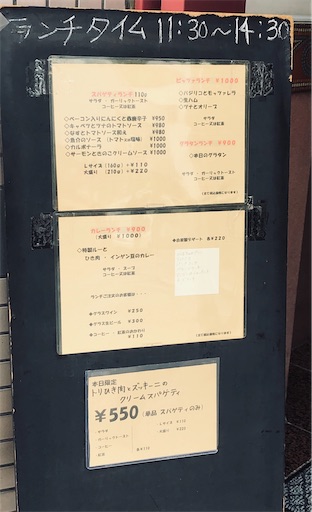 ランチタイム 11:30～14:30
スパゲティランチ 110g
サラダ ガーリックトースト
コーヒー又は紅茶
◇ベーコン入りにんにくと唐辛子 ¥950
◇キャベツとツナのトマトソース ¥900
◇なすとトマトソース ¥900
◇カルボナーラ ¥1000
◇サーモンときのこクリームソース ¥1000
Lサイズ (160g) +¥110
大盛り (210g) +¥220
ピッツァランチ ¥1000
◇バジリコとモッツァレラ
◇生ハム
◇ツナとオリーブ
サラダ ガーリックトースト
コーヒー又は紅茶
グラタンランチ ¥900
◇本日のグラタン
サラダ ガーリックトースト
コーヒー又は紅茶
カレーランチ ¥900
(大盛り ¥1000)
◇特製ルーと
ひき肉・インゲン豆のカレー
サラダ スープ
コーヒー又は紅茶
ランチご注文のお客様は・・・
◆グラスワイン ¥250
◆グラス生ビール ¥300
◆コーヒー 紅茶のおかわり
¥110
◆お昼のデザート 各¥220
本日限定
トリひき肉とズッキーニの
クリームスパゲティ
¥550 (単品 スパゲティのみ)
サラダ
ガーリックトースト
コーヒー
紅茶
各¥110
Lサイズ ¥110
大盛り ¥220